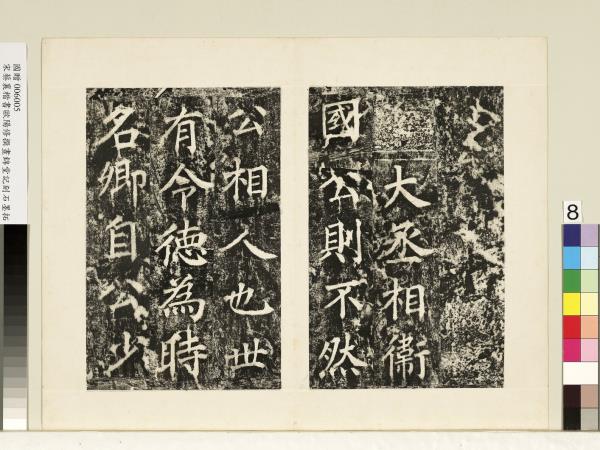 大丞相衛
國公則不然
公相人也世
有令德為時
名卿自公少
國贈 006005
宋蔡襄楷書歐陽修撰晝錦堂記刻石墨拓
8